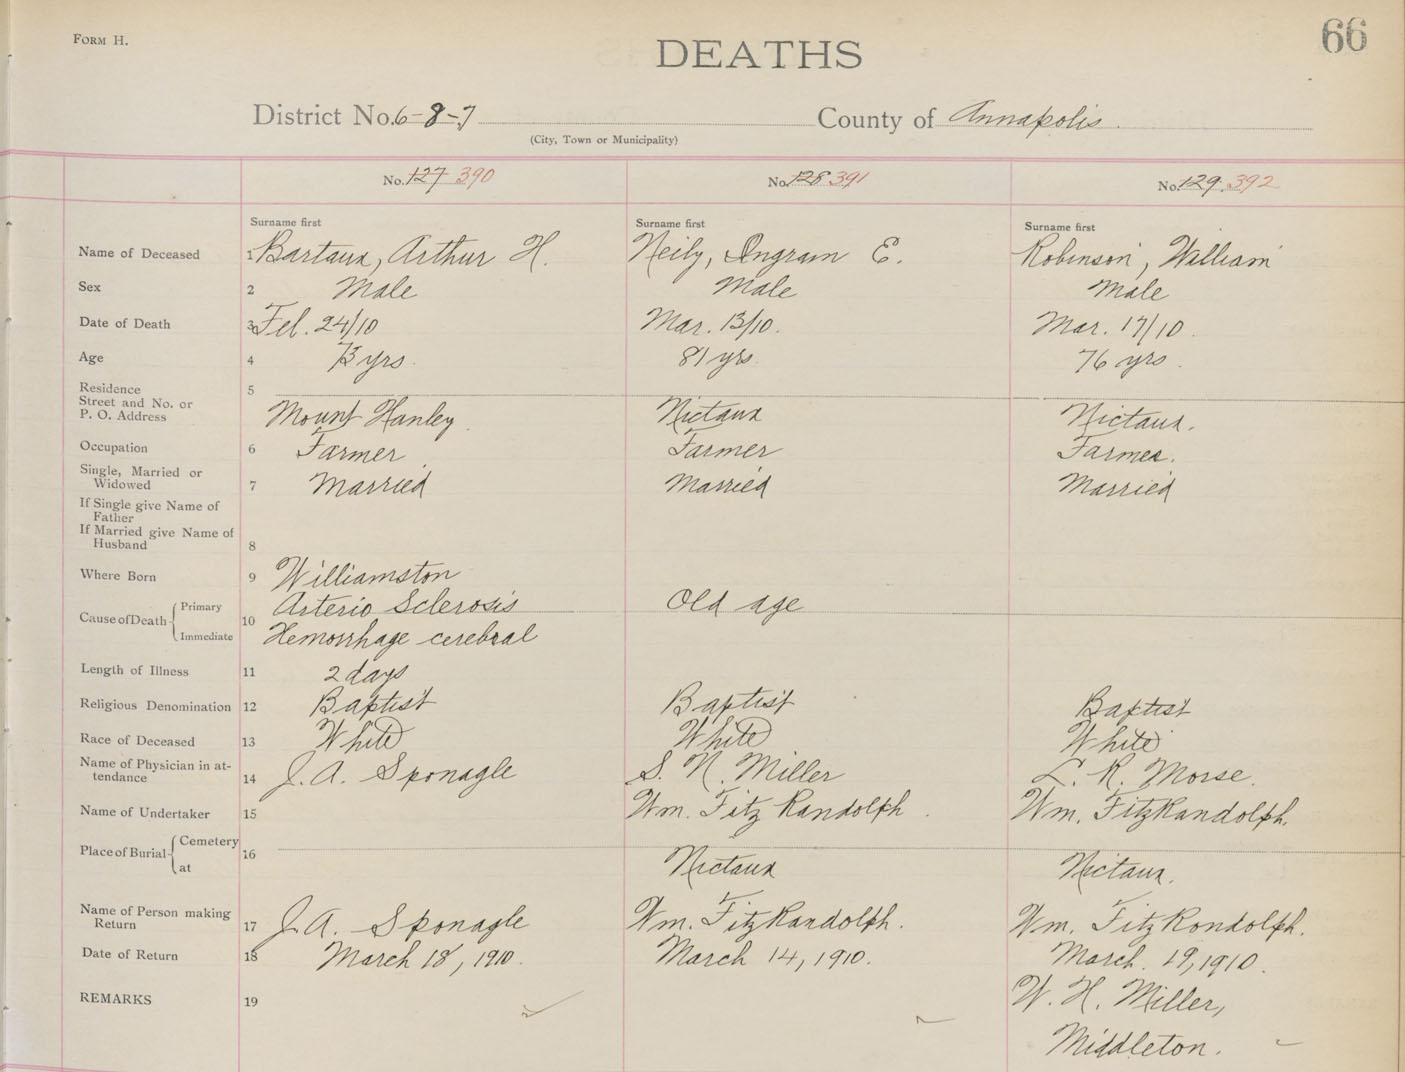 FORM H.
66
DEATHS
District No. 6-8-7 County of Annapolis.
(City, Town or Municipality)
No. 127 390 No. 128 391 No. 129. 392
Surname first Surname first Surname first
Name of Deceased 1 Bartaux, Arthur H. Neily, Ingram E. Robinson, William
Sex 2 Male Male Male
Date of Death 3 Feb. 24/10 Mar. 13/10. Mar. 17/10.
Age 4 73 yrs. 81 yrs. 76 yrs.
Residence 5
Street and No. or
P. O. Address Mount Hanley. Nictaux Nictaux.
Occupation 6 Farmer Farmer Farmer.
Single, Married or
Widowed 7 Married Married Married
If Single give Name of
Father
If Married give Name of
Husband 8
Where Born 9 Williamston
Cause of Death Primary 10 Arterio Sclerosis Old age
Immediate Hemorrhage cerebral
Length of Illness 11 2 days
Religious Denomination 12 Baptist Baptist Baptist
Race of Deceased 13 White White White
Name of Physician in at-
tendance 14 J. A. Sponagle S. N. Miller L. R. Morse.
Name of Undertaker 15 Wm. Fitz Randolph. Wm. FitzRandolph.
Place of Burial Cemetery 16
at Nictaux Nictaux.
Name of Person making
Return 17 J. A. Sponagle Wm. FitzRandolph. Wm. Fitz Rondolph.
Date of Return 18 March 18, 1910. March 14, 1910. March. 19, 1910.
REMARKS 19 W. H. Miller,
Middleton.